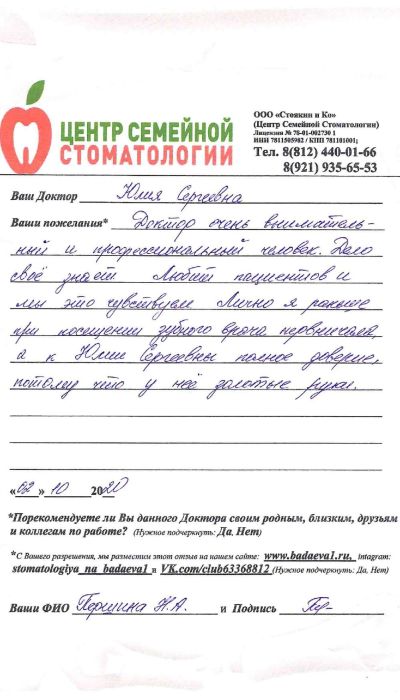 ЦЕНТР СЕМЕЙНОЙ
СТОМАТОЛОГИИ
ООО «Стоякин и Ко»
(Центр Семейной Стоматологии)
Лицензия № 78-01-002730 1
ИНН 7811505982 / КПП 781101001;
Тел. 8(812) 440-01-66
8(921) 935-65-53
Ваш Доктор Юлия Сергеевна
Ваши пожелания* Доктор очень вниматель-
ный и профессиональный человек. Дело
своё знает. Любит пациентов и
мы это чувствуем. Лично я раньше
при посещении зубного врача нервничала,
а к Юлии Сергеевны полное доверие,
потому что у неё золотые руки.
«02» 10 2020
*Порекомендуете ли Вы данного Доктора своим родным, близким, друзьям
и коллегам по работе? (Нужное подчеркнуть: Да, Нет)
*С Вашего разрешения, мы разместим этот отзыв на нашем сайте: www.badaeva1.ru, intagram:
stomatologiya_na_badaeva1 и VK.com/club63368812 (Нужное подчеркнуть: Да, Нет)
Ваши ФИО Першина Н.А. и Подпись